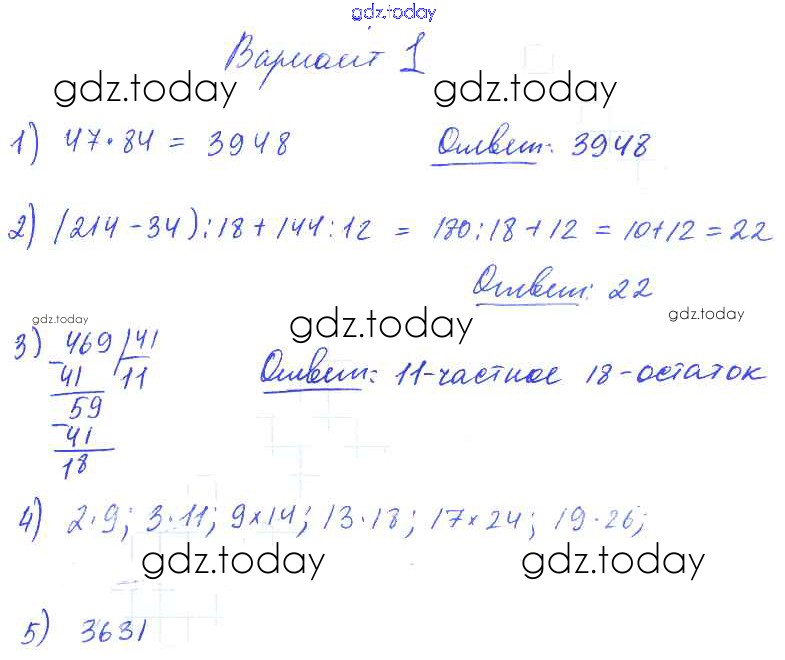 gdz.today
Вариант 1
gdz.today gdz.today
1) 47·84 = 3948 Ответ: 3948
2) (214-34):18+144:12 = 180:18+12 = 10+12 = 22
Ответ: 22
gdz.today gdz.today gdz.today
3) 469 | 41
- 41 11 Ответ: 11-частное 18-остаток
59
- 41
18
4) 2·9; 3·11; 9×14; 13·18; 17×24; 19·26;
gdz.today gdz.today
5) 3631